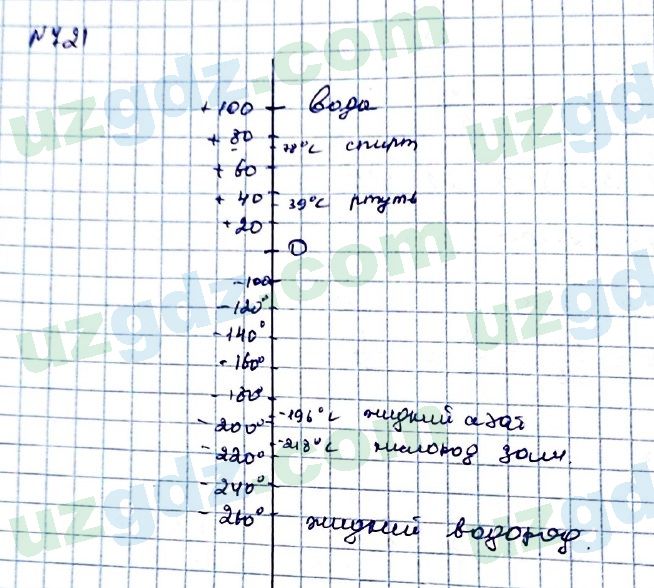 № 721
+ 100 вода
+ 80
78°C спирт
+ 60
+ 40
39°C ртуть
+ 20
0
- 100
- 120°
- 140°
- 160°
- 180°
- 196°C жидкий азот
- 200°
- 218°C
- 220°
- 240°
- 260° жидкий водород.
uzgdz.com